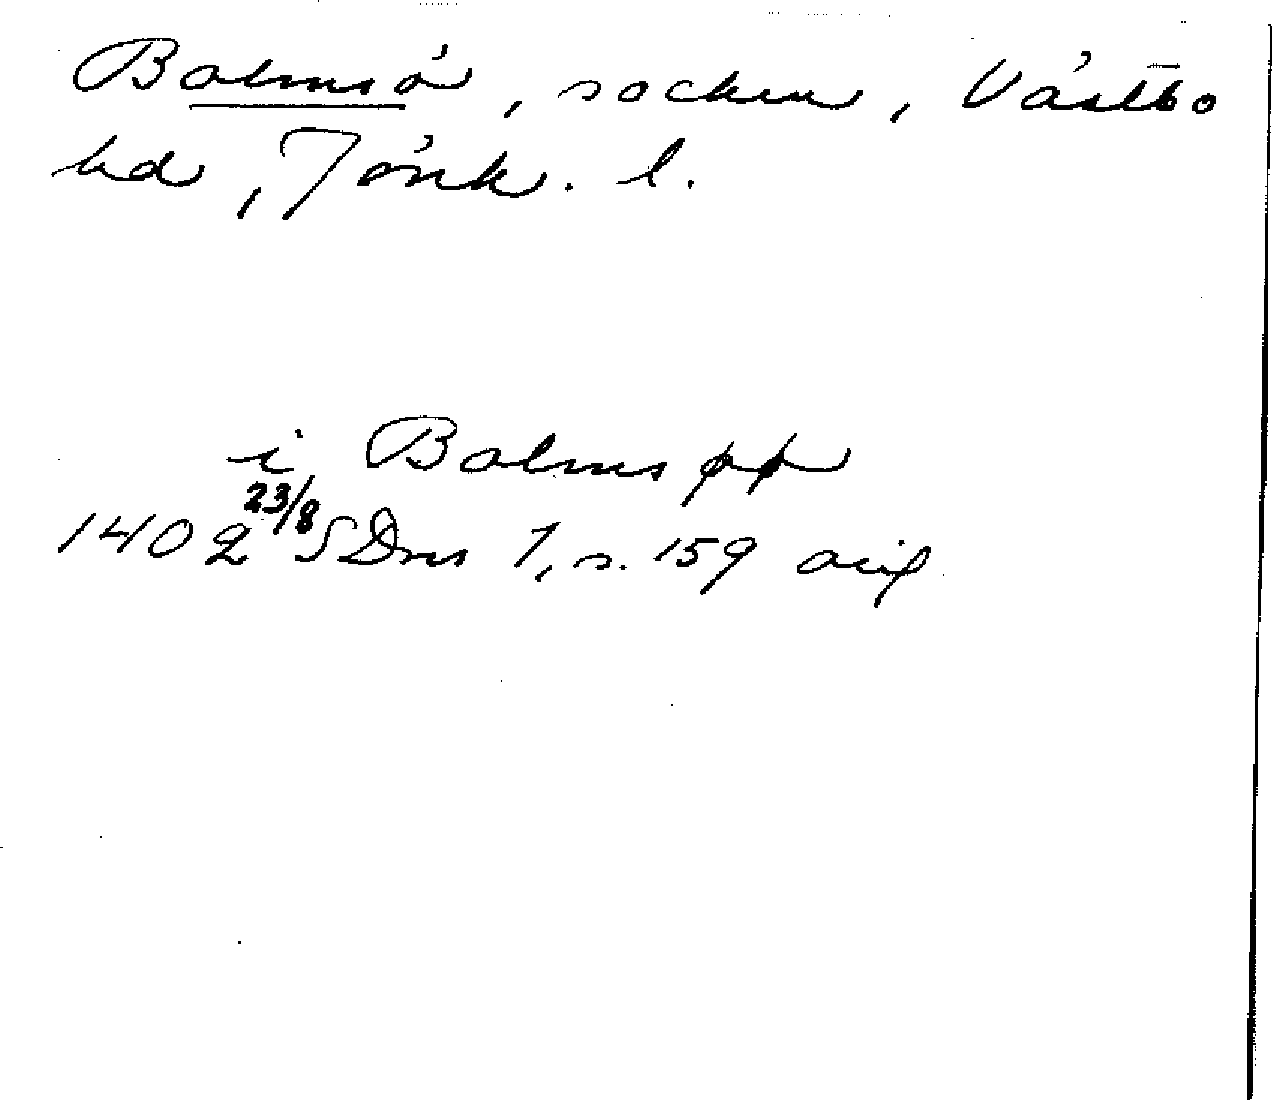 Bolmsö, socken, Västbo
hd, Jönk. l.
i Bolms pp
1402 23/8 SDns 1, s. 159 orig